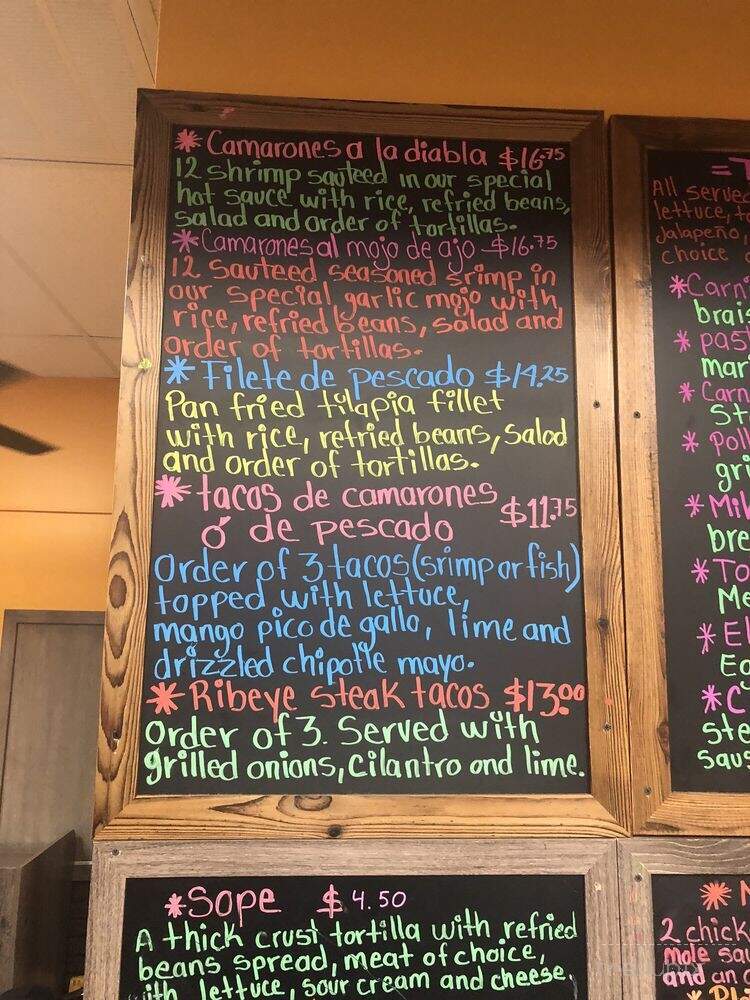 * Camarones a la diabla $16.75
12 shrimp sauteed in our special
hot sauce with rice, refried beans,
salad and order of tortillas.
* Camarones al mojo de ajo $16.75
12 Sauteed seasoned srimp in
our special garlic mojo with
rice, refried beans, salad and
order of tortillas.
* Filete de pescado $14.25
Pan fried tilapia fillet
with rice, refried beans, salad
and order of tortillas.
* tacos de camarones $11.75
ó de pescado
Order of 3 tacos (srimp or fish)
topped with lettuce,
mango pico de gallo, lime and
drizzled chipotle mayo.
* Ribeye steak tacos $13.00
Order of 3. Served with
grilled onions, cilantro and lime.
* Sope $ 4.50
A thick crust tortilla with refried
beans spread, meat of choice,
with lettuce, sour cream and cheese.
All serve
lettuce,
Jalapeño,
choice
* Carn
brais
* past
mar
* Carn
St
* Poll
gri
* Mil
bre
* To
Me
* El
Eg
* C
ste
saus
2 chick
mole sau
and an